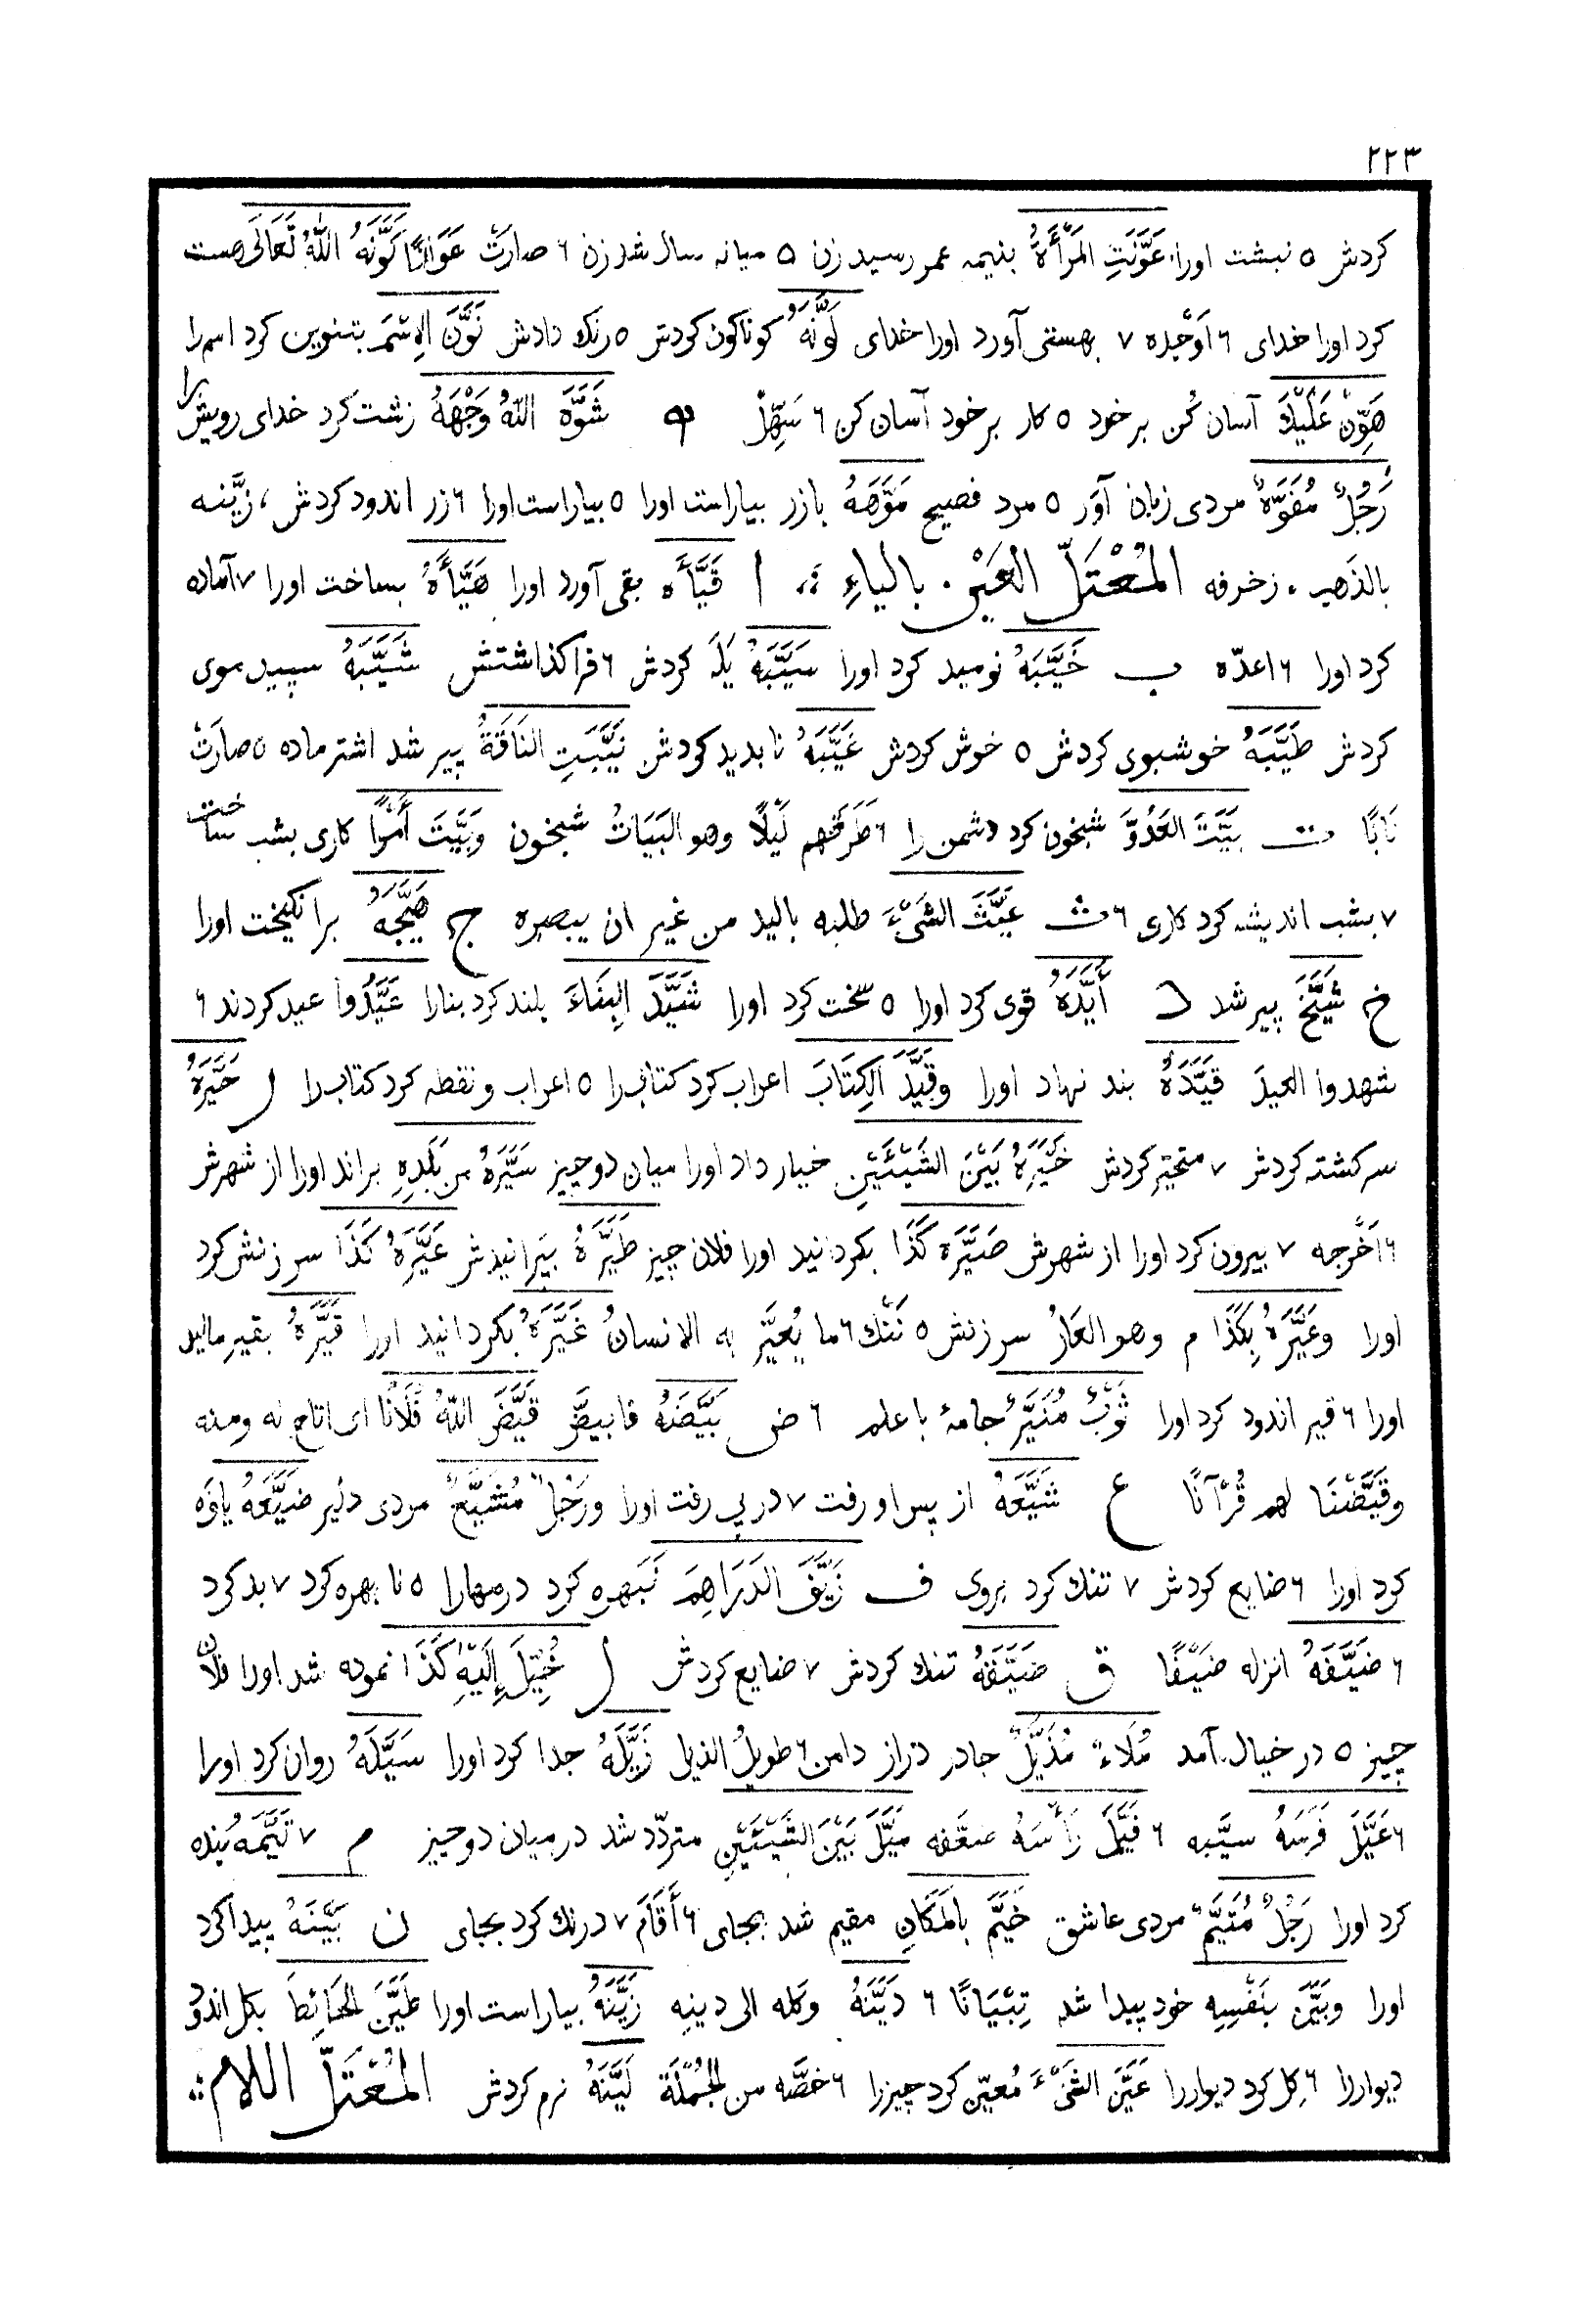 ٢٢٣
كردش ٥ نبشت اورا عَوَّنَتِ المَرْأَةُ بنيمه عمر رسيد زن ٥ ميانه سال شد زن ٦ صارَتْ عَوَانًا كَوَّنَهُ اللّهُ تَعَالَى هست
كرد اورا خداى ٦ اَوْجَده ٧ بهستى آورد اورا خداى لَوَّنَهُ كوناكون كردش ٥ رنك دادش نَوَّنَ الاِسْمَ بتنوين كرد اسم را
هَوِّنْ عَلَيْكَ آسان كُن بر خود ٥ كار بر خود آسان كن ٦ سَهِّلْ ه شَوَّهَ اللّهُ وَجْهَهُ زشت كرد خداى رويش را
رَجُلٌ مُفَوَّهٌ مردى زبان آوَر ٥ مرد فصيح مَوَّهَهُ بازر بياراست اورا ٥ بياراست اورا ٦ زر اندود كردش ، زيَّنه
بالذهب . زخرفه المُعْتَلّ العَيْن . بالياءِ ا قَيَّأَه بقى آورد اورا هَيَّأَهُ بساخت اورا ٧ آماده
كرد اورا ٦ اعدّه ب خَيَّبَهُ نوميد كرد اورا سَيَّبَهُ يَلَه كردش ٦ فرا كذاشتش شَيَّبَهُ سپيد موى
كردش طَيَّبَهُ خوشبوى كردش ٥ خوش كردش غَيَّبَهُ نا بديد كردش نَيَّبَتِ النَاقَةُ پير شد اشتر ماده ٥ صارَتْ
نَابًا ت بَيَّتَ العَدُوَّ شبخون كرد دشمن را ٦ طَرَقَهم لَيْلًا وهو البَيَاتُ شبخون وَبَيَّتَ أَمْرًا كارى بشب ساخت
٧ بشب انديشه كرد كارى ٦ ث عَيَّثَ الشَىْءَ طلبه باليد من غير ان يبصره ج هَيَّجَهُ برانكيخت اورا
خ شَيَّخَ پير شد د أَيَّدَهُ قوى كرد اورا ٥ سخت كرد اورا شَيَّدَ البِنَاءَ بلند كرد بنارا عَيَّدُوا عيد كردند ٦
شهدوا العيدَ قَيَّدَهُ بند نهاد اورا وقَيَّدَ الكِتَابَ اعراب كرد كتاب را ٥ اعراب و نقطه كرد كتاب را ر حَيَّرَهُ
سركشته كردش ٧ متحيّر كردش خَيَّرَهُ بَيْنَ الشَيْئَيْنِ خيار داد اورا ميان دو چيز سَيَّرَهُ من بَلَدِهِ براند اورا از شهرش
٦ اَخْرجه ٧ بيرون كرد اورا از شهرش صَيَّرَه كَذَا بكردانيد اورا فلان چيز طَيَّرَهُ بپرانيدش عَيَّرَهُ كَذَا سرزنش كرد
اورا وعَيَّرَهُ بِكَذَا م وهو العَارُ سرزنش ٥ نَنْك ٦ ما يُعيَّر به الانسانُ غَيَّرَهُ بكردانيد اورا قَيَّرَهُ بقير ماليد
اورا ٦ قير اندود كرد اورا ثَوْبٌ مُنَيَّرٌ جامهٔ با علم ٦ ض بَيَّضَهُ فابيضّ قَيَّضَ اللّهُ فُلَانًا اى اتاح له ومنه
وقَيَّضْنَا لهم قُرْآنًا ع شَيَّعَهُ از پس او رفت ٧ در پى رفت اورا ورَجُلٌ مُشَيَّعٌ مردى دلير ضَيَّعَهُ ياوَه
كرد اورا ٦ ضايع كردش ٧ تنك كرد بروى ف زَيَّفَ الدَرَاهِمَ نَبَهره كرد درمهارا ٥ نا بهره كرد ٧ بد كرد
٦ ضَيَّفَهُ انزله ضَيْفًا ق ضَيَّقَهُ تنك كردش ٧ ضايع كردش ل خُيِّلَ إِلَيْهِ كَذَا نموده شد اورا فلان
چيز ٥ در خيال آمد مُلَاءٌ مُذَيَّلٌ جادر دراز دامن ٦ طويلُ الذيل زَيَّلَهُ جدا كرد اورا سَيَّلَهُ روان كرد اورا
٦ عَيَّلَ فَرَسَهُ سيّبه ٦ فَيَّلَ رَأْسَهُ ضعّفه مَيَّلَ بَيْنَ الشَّيْئَيْنِ متردّد شد در ميان دو چيز م ٧ تَيَّمَهُ بنده
كرد اورا رَجُلٌ مُتَيَّمٌ مردى عاشق خَيَّمَ بالمَكَانِ مقيم شد بجاى ٦ أَقَامَ ٧ درنك كرد بجاى ن بَيَّنَهُ پيدا كرد
اورا وبَيَّن بنَفْسِهِ خود پيدا شد تِبْيَانًا ٦ دَيَّنَهُ وكله الى دينِه زَيَّنَهُ بياراست اورا طَيَّنَ الحَائِطَ بكل اندود
ديواررا ٦ كِل كرد ديواررا عَيَّنَ الشَىْءَ مُعيّن كرد چيزرا ٦ خصّه من الجُمْلَة لَيَّنَهُ نرم كردش المُعْتَلّ اللام